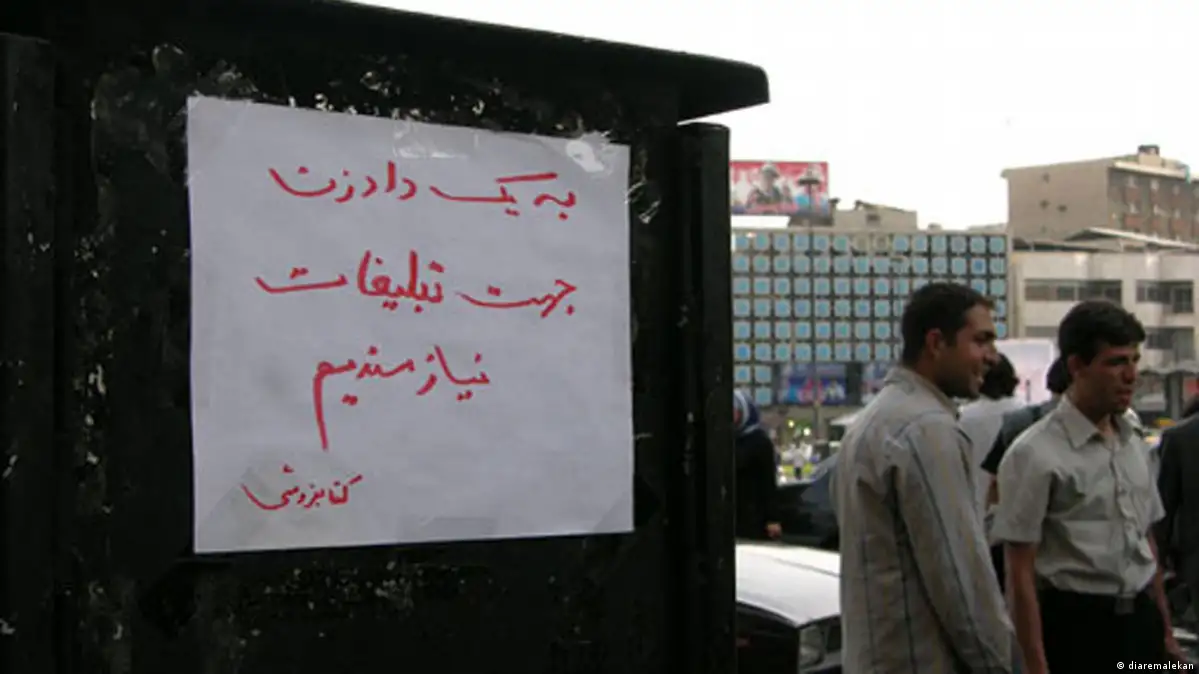 به یک دادزن
جهت تبلیغات
نیازمندیم
کتابفروشی
@ diaremalekan